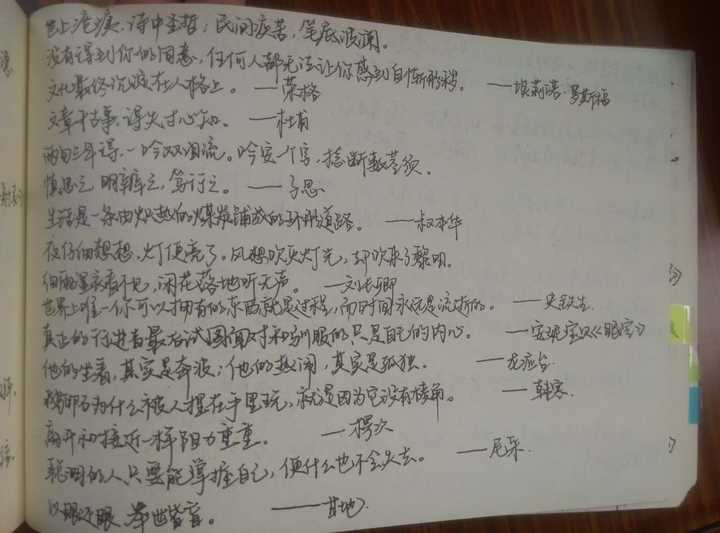 世上疮痍，诗中圣哲；民间疾苦，笔底波澜。
没有得到你的同意，任何人都无法让你感到自惭形秽。 ——埃莉诺·罗斯福
文化最终沉淀在人格上。 ——荣格
文章千古事，得失寸心知。 ——杜甫
两句三年得，一吟双泪流。吟安一个字，捻断数茎须。
慎思之，明辨之，笃行之。 ——子思
生活是一条由炽热的煤炭铺成的环形道路。 ——叔本华
夜仔细想想，灯便亮了。风想吹灭灯光，却吹来了黎明。
细雨湿衣看不见，闲花落地听无声。 ——刘长卿
世界上唯一你可以拥有的东西就是过程，而时间永远是流逝的。 ——史铁生
真正的行进者最后试图面对和驯服的只是自己的内心。
他的坐着，其实是奔波；他的热闹，其实是孤独。 ——龙应台
鹅卵石为什么被人握在手里玩，就是因为它没有棱角。 ——韩寒
离开和接近一样阻力重重。
聪明的人只要能掌握自己，便什么也不会失去。 ——尼采
以眼还眼，举世皆盲。 ——甘地